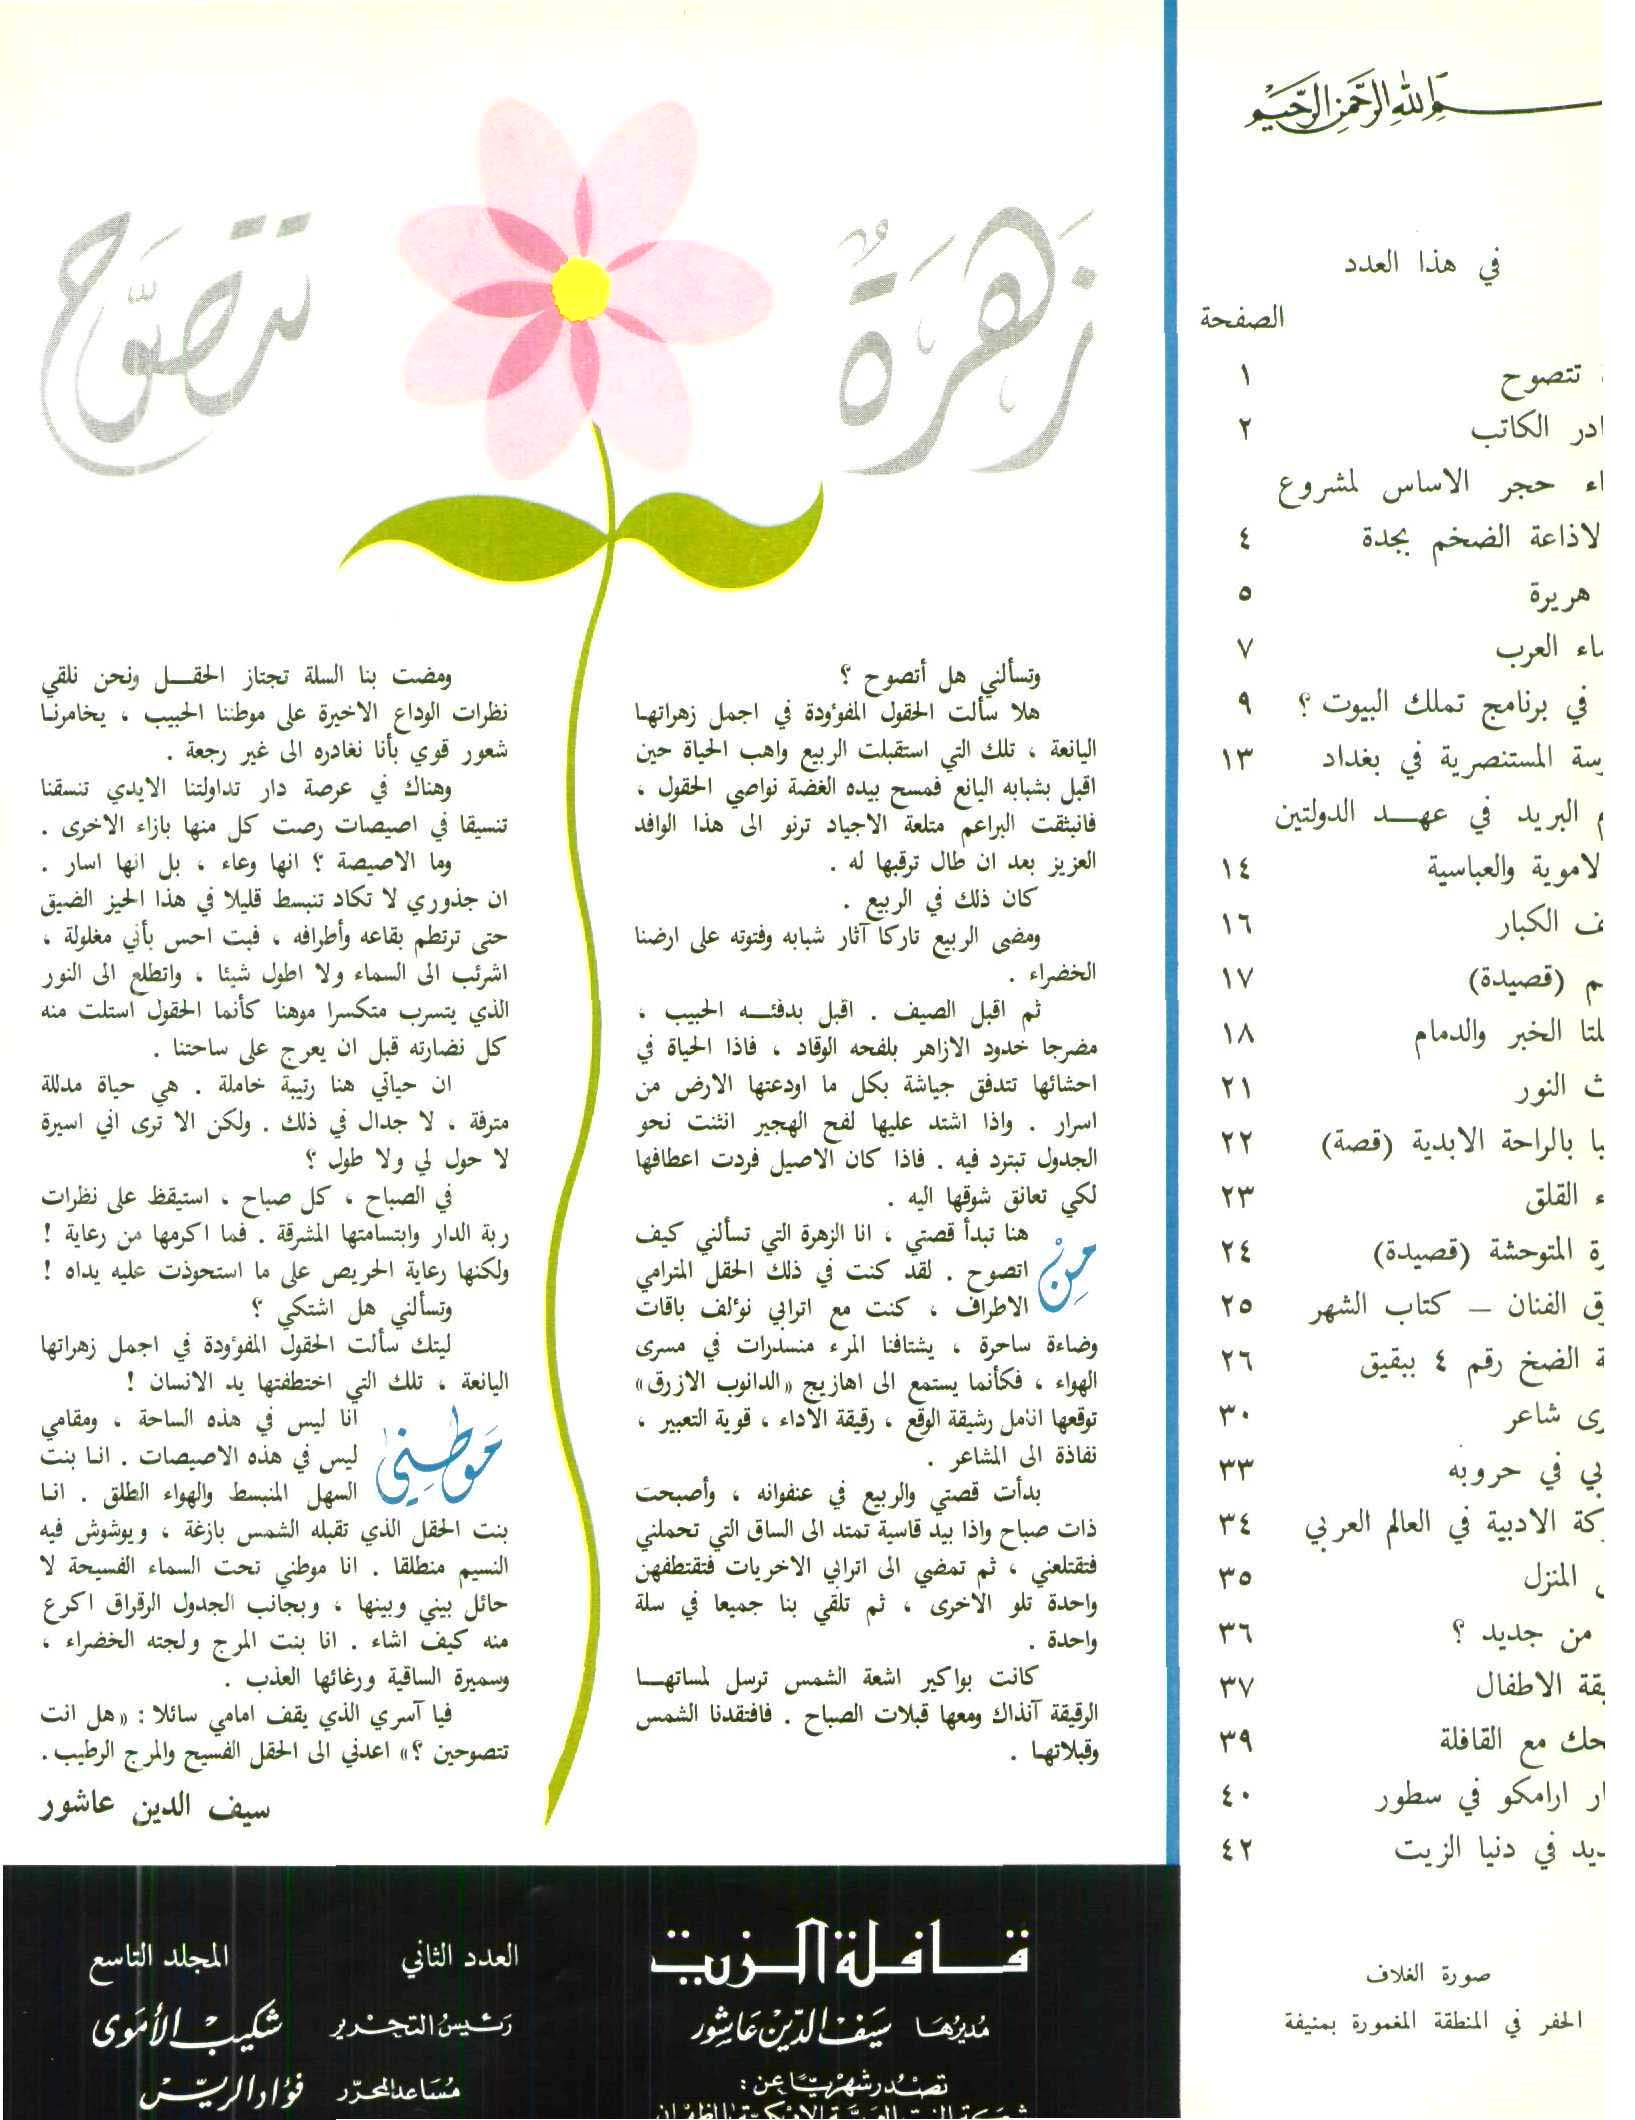 بسم الله الرحمن الرحيم
في هذا العدد
الصفحة
تتصوح ١
الكاتب ٢
حجر الاساس لمشروع
الاذاعة الضخم بجدة ٤
هريرة ٥
العرب ٧
في برنامج تملك البيوت ؟ ٩
المستنصرية في بغداد ١٣
البريد في عهـــد الدولتين
الاموية والعباسية ١٤
الكبار ١٦
(قصيدة) ١٧
الخبر والدمام ١٨
النور ٢١
بالراحة الابدية (قصة) ٢٢
القلق ٢٣
المتوحشة (قصيدة) ٢٤
الفنان – كتاب الشهر ٢٥
الضخ رقم ٤ ببقيق ٢٦
شاعر ٣٠
في حروبه ٣٣
الادبية في العالم العربي ٣٤
المنزل ٣٥
من جديد ؟ ٣٦
الاطفال ٣٧
مع القافلة ٣٩
ارامكو في سطور ٤٠
في دنيا الزيت ٤٢
صورة الغلاف
الحفر في المنطقة المغمورة بمنيفة
زهرة تتصوح
وتسألني هل أتصوح ؟
هلا سألت الحقول المفؤودة في اجمل زهراتهـا
اليانعة ، تلك التي استقبلت الربيع واهب الحياة حين
اقبل بشبابه اليانع فمسح بيده الغضة نواصي الحقول ،
فانبثقت البراعم متلعة الاجياد ترنو الى هذا الوافد
العزيز بعد ان طال ترقبها له .
كان ذلك في الربيع .
ومضى الربيع تاركا آثار شبابه وفتوته على ارضنا
الخضراء .
ثم اقبل الصيف . اقبل بدفئـــه الحبيب ،
مضرجا خدود الازاهر بلفحه الوقاد ، فاذا الحياة في
احشائها تتدفق جياشة بكل ما اودعتها الارض من
اسرار . واذا اشتد عليها لفح الهجير انثنت نحو
الجدول تبترد فيه . فاذا كان الاصيل فردت اعطافها
لكي تعانق شوقها اليه .
من هنا تبدأ قصتي ، انا الزهرة التي تسألني كيف
اتصوح . لقد كنت في ذلك الحقل المترامي
الاطراف ، كنت مع اترابي نؤلف باقات
وضاءة ساحرة ، يشتافنا المرء منسدرات في مسرى
الهواء ، فكأنما يستمع الى اهازيج «الدانوب الازرق»
توقعها انامل رشيقة الوقع ، رقيقة الاداء ، قوية التعبير ،
نفاذة الى المشاعر .
بدأت قصتي والربيع في عنفوانه ، وأصبحت
ذات صباح واذا بيد قاسية تمتد الى الساق التي تحملني
فتقتلعني ، ثم تمضي الى اترابي الاخريات فتقتطفهن
واحدة تلو الاخرى ، ثم تلقي بنا جميعا في سلة
واحدة .
كانت بواكير اشعة الشمس ترسل لمساتهـــا
الرقيقة آنذاك ومعها قبلات الصباح . فافتقدنا الشمس
وقبلاتهـا .
ومضت بنا السلة تجتاز الحقـــل ونحن نلقي
نظرات الوداع الاخيرة على موطننا الحبيب ، يخامرنـا
شعور قوي بأنا نغادره الى غير رجعة .
وهناك في عرصة دار تداولتنا الايدي تنسقنا
تنسيقا في اصيصات رصت كل منها بازاء الاخرى .
وما الاصيصة ؟ انها وعاء ، بل انها اسار .
ان جذوري لا تكاد تنبسط قليلا في هذا الحيز الضيق
حتى ترتطم بقاعه وأطرافه ، فبت احس بأني مغلولة ،
اشرئب الى السماء ولا اطول شيئا ، واتطلع الى النور
الذي يتسرب متكسرا موهنا كأنما الحقول استلت منه
كل نضارته قبل ان يعرج على ساحتنا .
ان حياتي هنا رتيبة خاملة . هي حياة مدللة
مترفة ، لا جدال في ذلك . ولكن الا ترى اني اسيرة
لا حول لي ولا طول ؟
في الصباح ، كل صباح ، استيقظ على نظرات
ربة الدار وابتسامتها المشرقة . فما اكرمها من رعاية !
ولكنها رعاية الحريص على ما استحوذت عليه يداه !
وتسألني هل اشتكي ؟
ليتك سألت الحقول المفؤودة في اجمل زهراتها
اليانعة ، تلك التي اختطفتها يد الانسان !
موطني انا ليس في هذه الساحة ، ومقامي
ليس في هذه الاصيصات . انـا بنت
السهل المنبسط والهواء الطلق . انـا
بنت الحقل الذي تقبله الشمس بازغة ، ويوشوش فيه
النسيم منطلقا . انا موطني تحت السماء الفسيحة لا
حائل بيني وبينها ، وبجانب الجدول الرقراق اكرع
منه كيف اشاء . انا بنت المرج ولجته الخضراء ،
وسميرة الساقية ورغائها العذب .
فيا آسري الذي يقف امامي سائلا : «هل انت
تتصوحين ؟» اعدني الى الحقل الفسيح والمرج الرطيب.
سيف الدين عاشور
قافلة الزيت
العدد الثاني المجلد التاسع
مديرها سيف الدين عاشور
رئيس التحرير شكيب الأموى
مساعد المحرر فؤاد الريس
تصدر شهريًا عن :